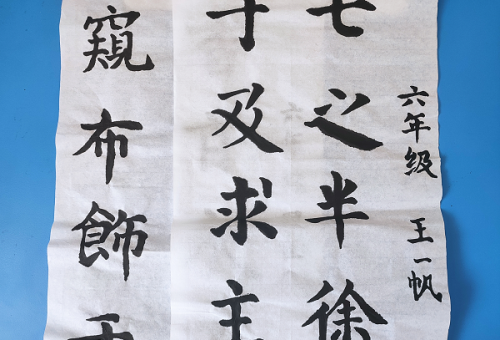 六年级 王一帆
七之半徐
及求主
窺布飾